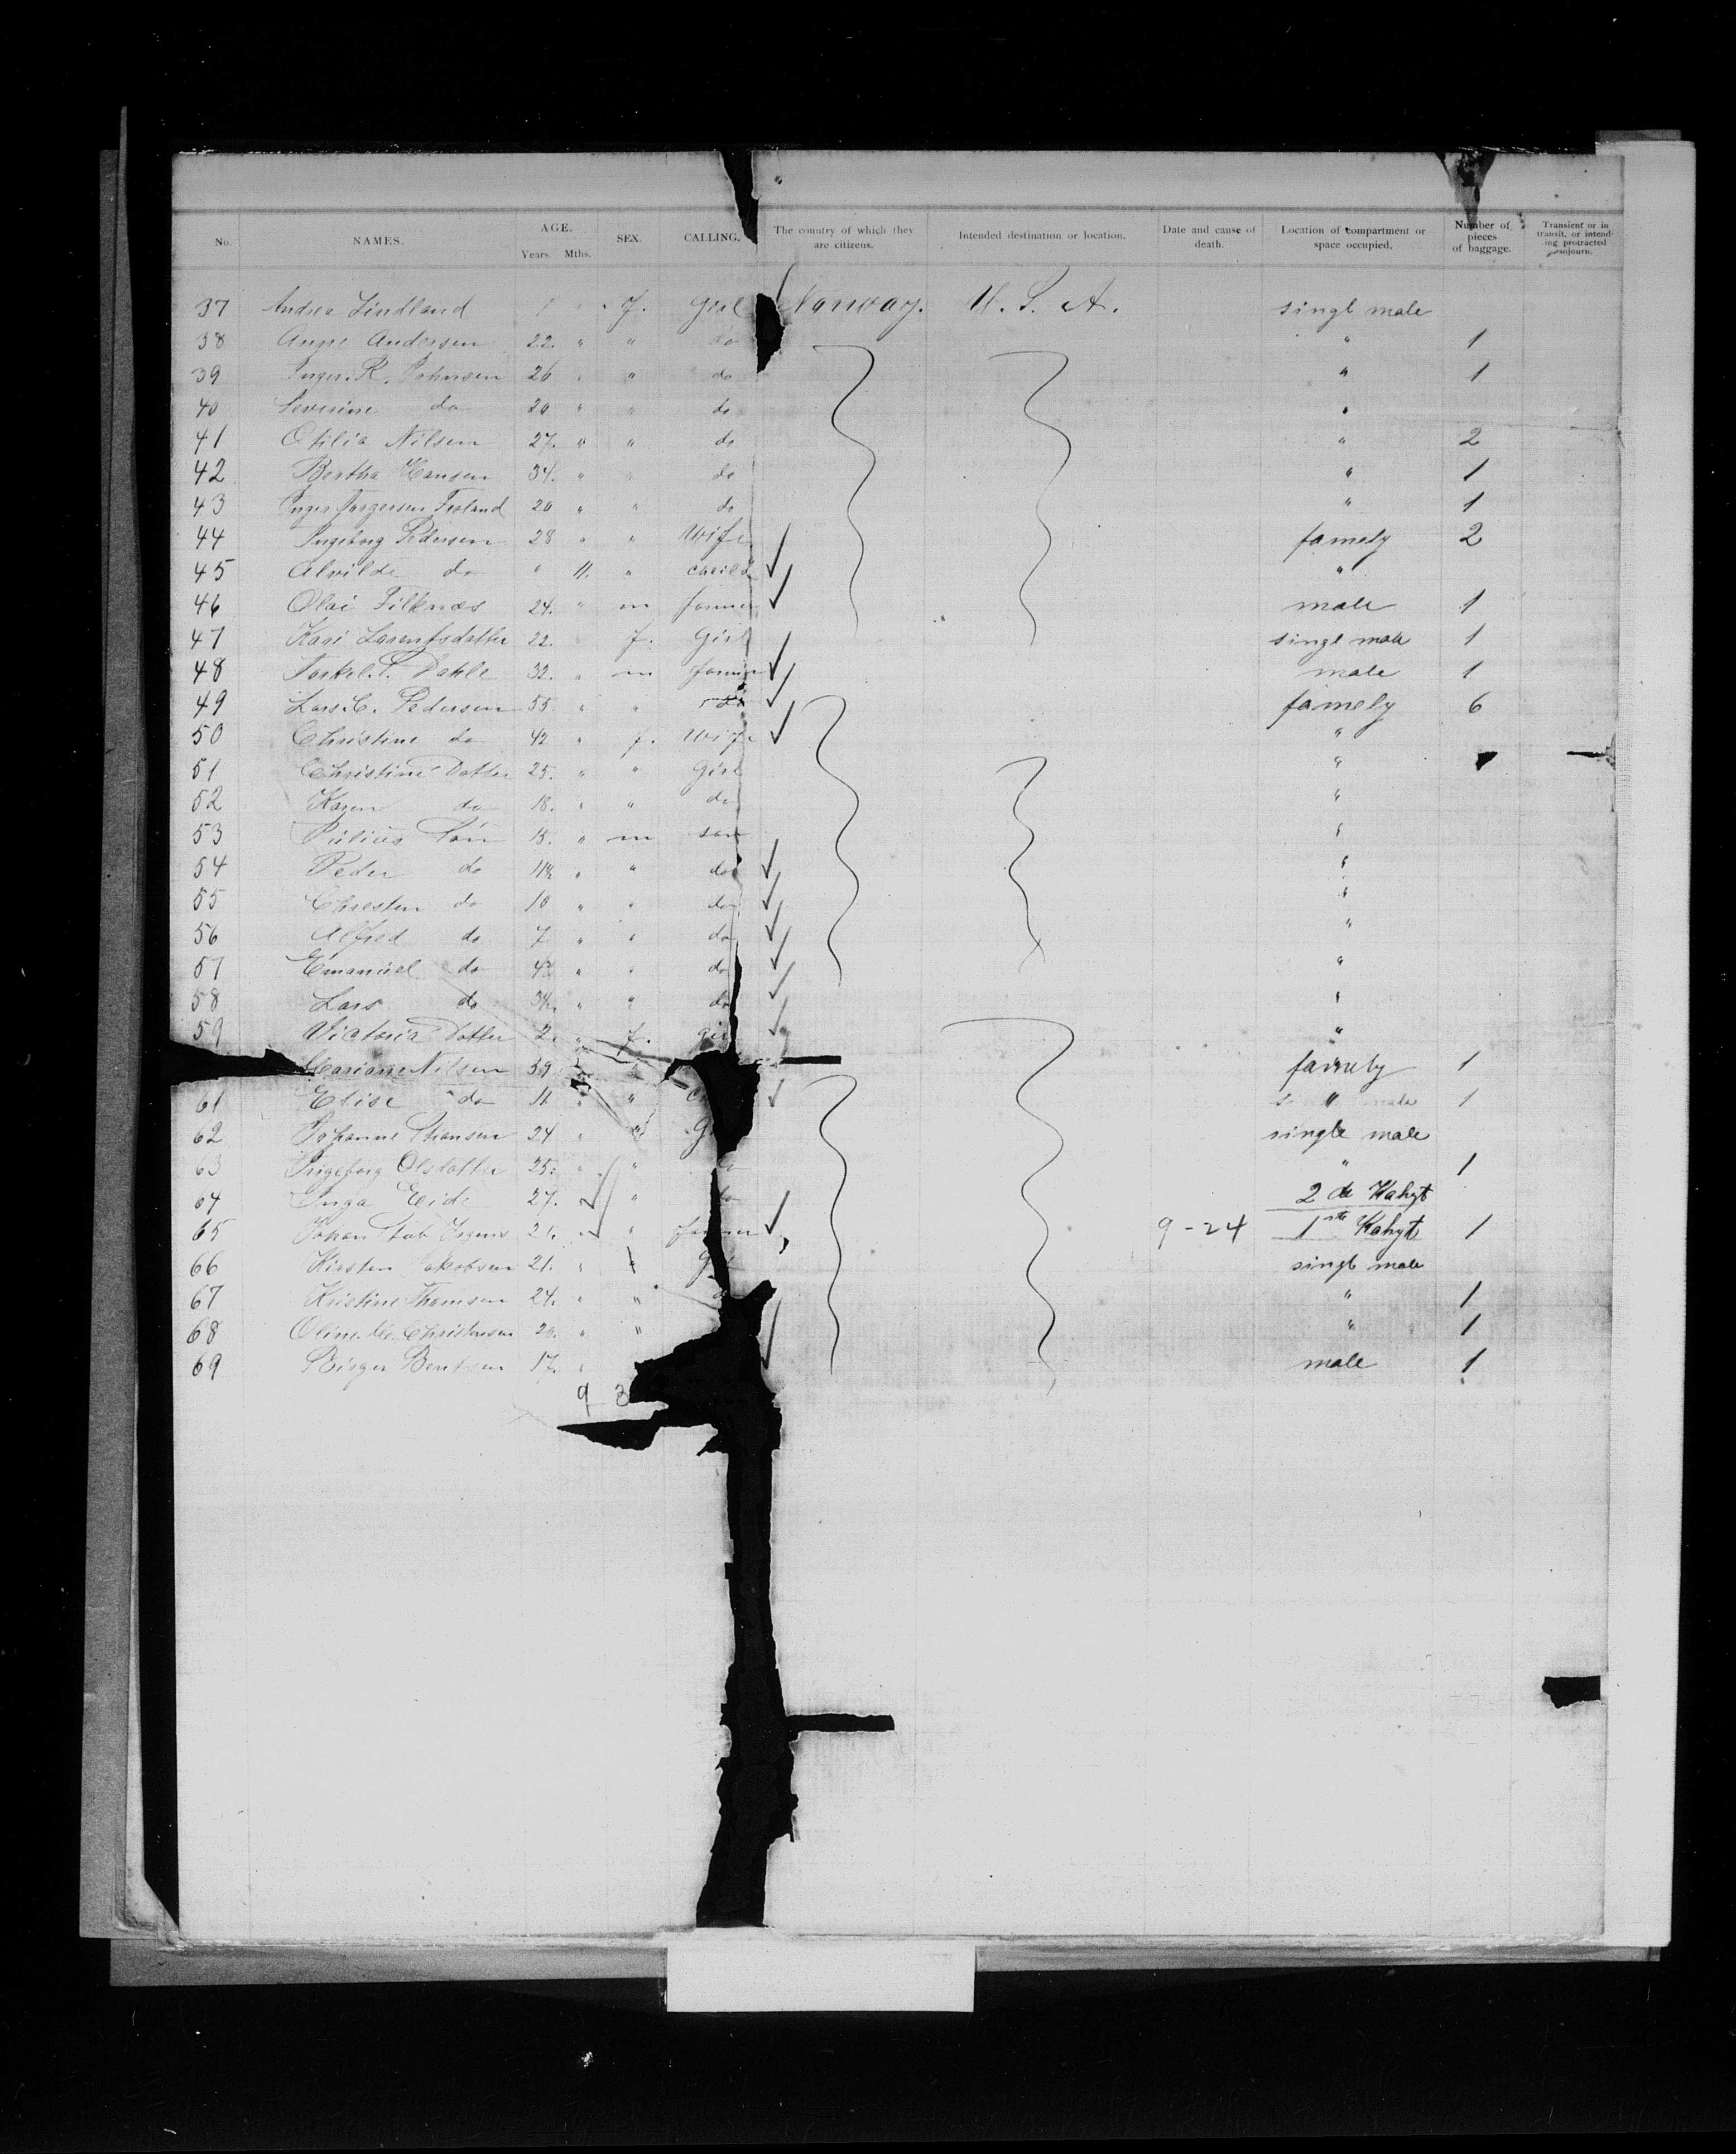 No. NAMES. AGE. Years. Mths. SEX. CALLING. The country of which they are citizens. Intended destination or location. Date and cause of death. Location of compartment or space occupied. Number of pieces of baggage. Transient or in transit, or intending protracted sojourn.
37 Andrea Lindland " f. girl Norway. U. S. A. singl male
38 Andersen 22. " " do " 1
39 Inger. R. Johnsen 26 " " do " 1
40 Severine do 20 " " do "
41 Otilia Nilsen 27. " " do " 2
42 Bertha Hansen 34. " " do " 1
43 Inger Jorgersen 20 " " do " 1
44 Ingeborg Pedersen 28 " " Wife famely 2
45 Alvilde do " 11. " child "
46 Olai Filknæs 24. " m farmer male 1
47 Kari Larentsdatter 22. " f. Girl singl male 1
48 Dahle 32. " m farmer male 1
49 Lars. C. Pedersen 55 " " famely 6
50 Christine do 42 " f. Wife "
51 Christine Datter 25. " " Girl "
52 Karen do 18. " " do "
53 Julius Sön 15. " m son "
54 Peder do 11½ " " do "
55 Chresten do 10 " " do "
56 Alfred do 7 " " do "
57 Emanuel do " " do "
58 Lars do 3½ " " do "
59 Victoria Datter 2. " f. "
Nilsen 59 " famely 1
61 Elise do " " " male 1
62 Johanne 24 " " single male
63 Ingeborg Olsdatter 25. " " " 1
64 Inga Eide 27. " 2 de Kahyt
65 Johan " farmer 9-24 1ste Kahyt 1
66 Kirsten Jakobsen 21. " f singl male
67 Kristine Thomsen 24. " " " 1
68 Oline. M. Christensen 20. " " " 1
69 Birger Bentsen 17. " male 1
9 3